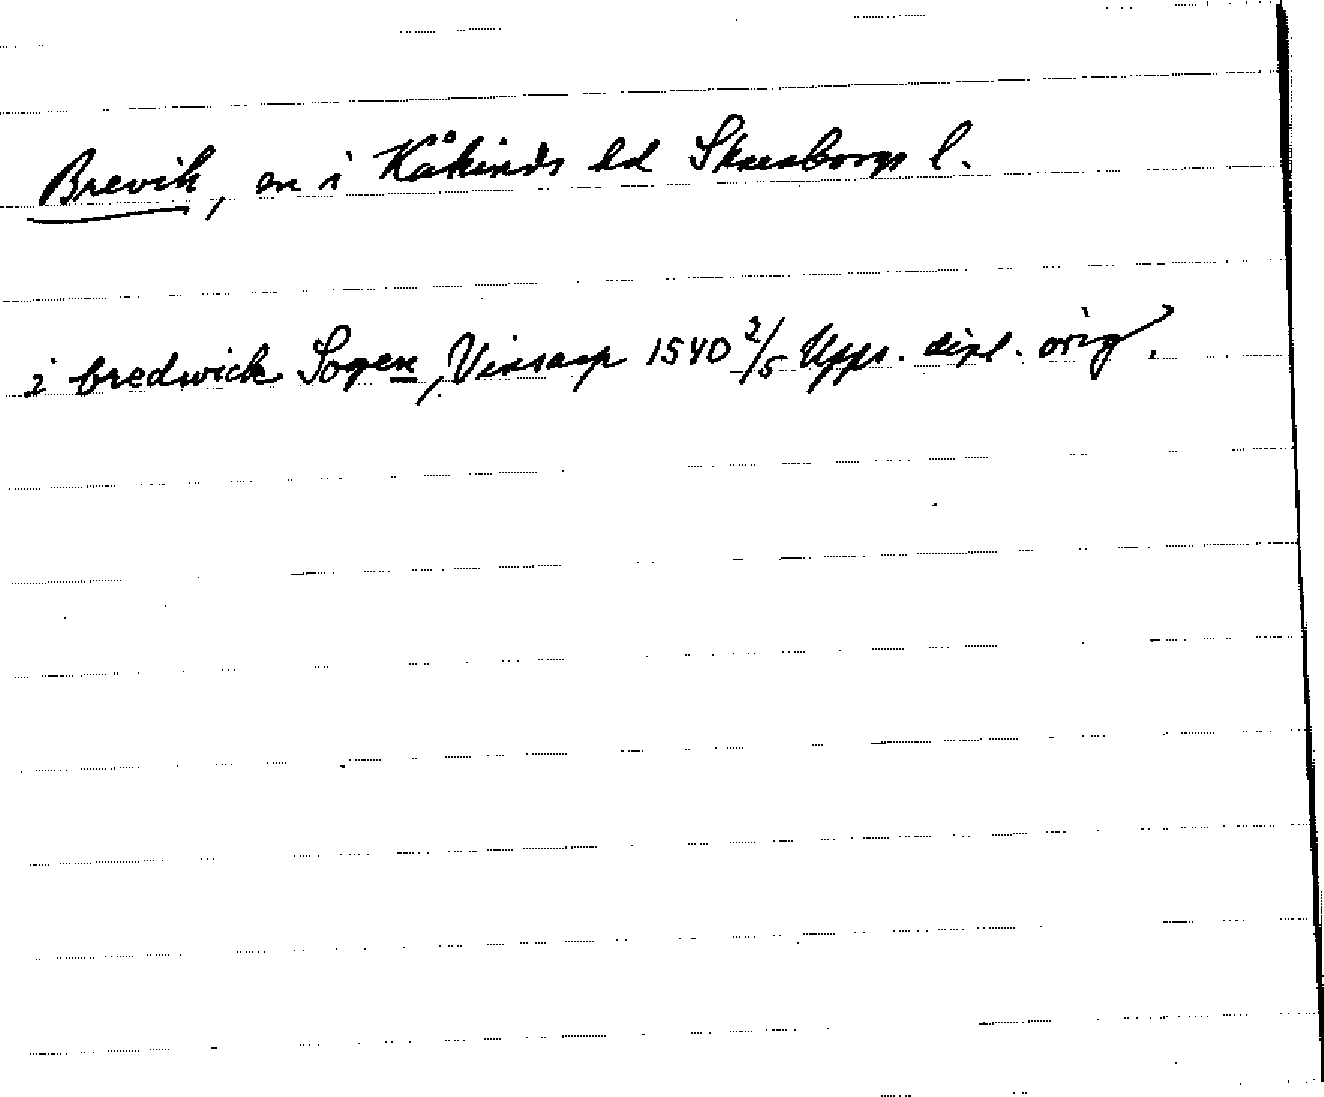 Brevik, sn i Kåkinds hd Skaraborgs l.
i bredwick Sogen, 1540 2/5 Upps. dipl. orig.